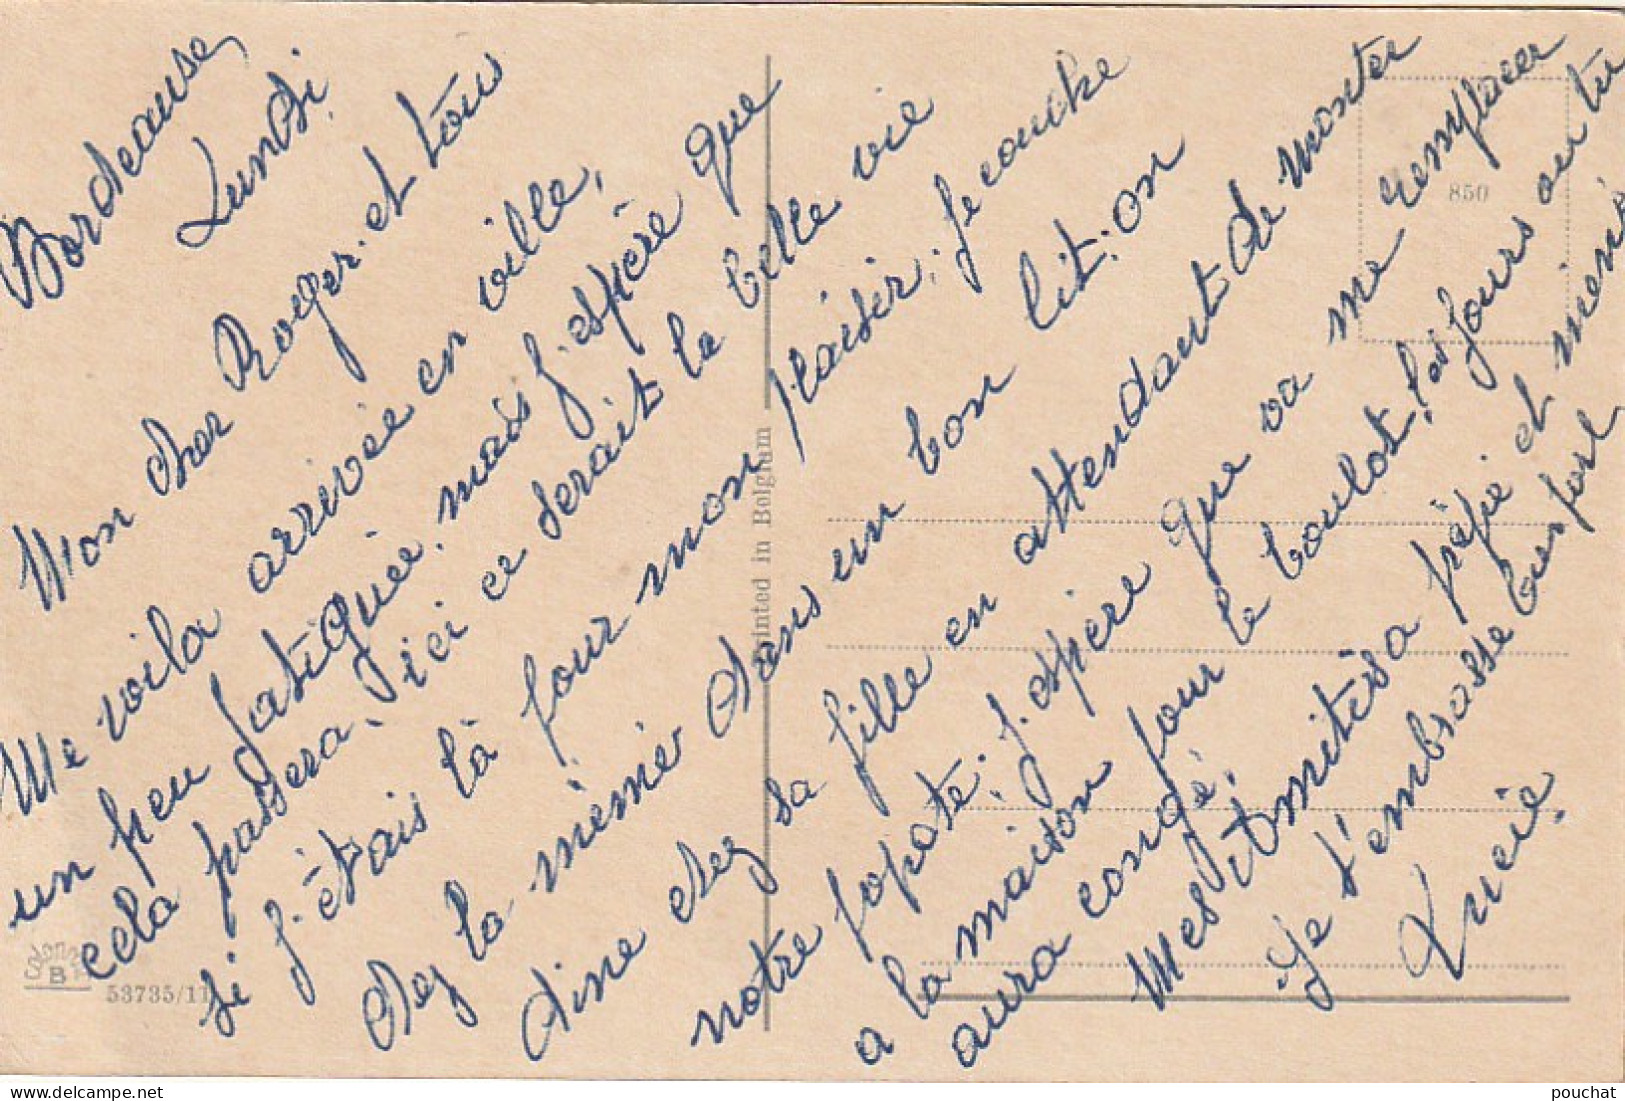 Bordeause
Lundi.
Mon cher Roger. et tous
Me voila arrivée en ville,
un peu fatiguée. mais j. espère que
cela passera, ici ce serait la belle vie
si j. étais là pour mon plaisir. je couche
chez la mémé dans un bon lit. on
dine chez sa fille en attendant de monter
notre popote. j. espère que va me remplacer
a la maison pour le boulot. les jours ou tu
aura congé.
Mes Amitiés a pépé et mémé
Je t'embrasse bien fort
Lucie.
Printed in Belgium
850
B
53735/11
pouchat